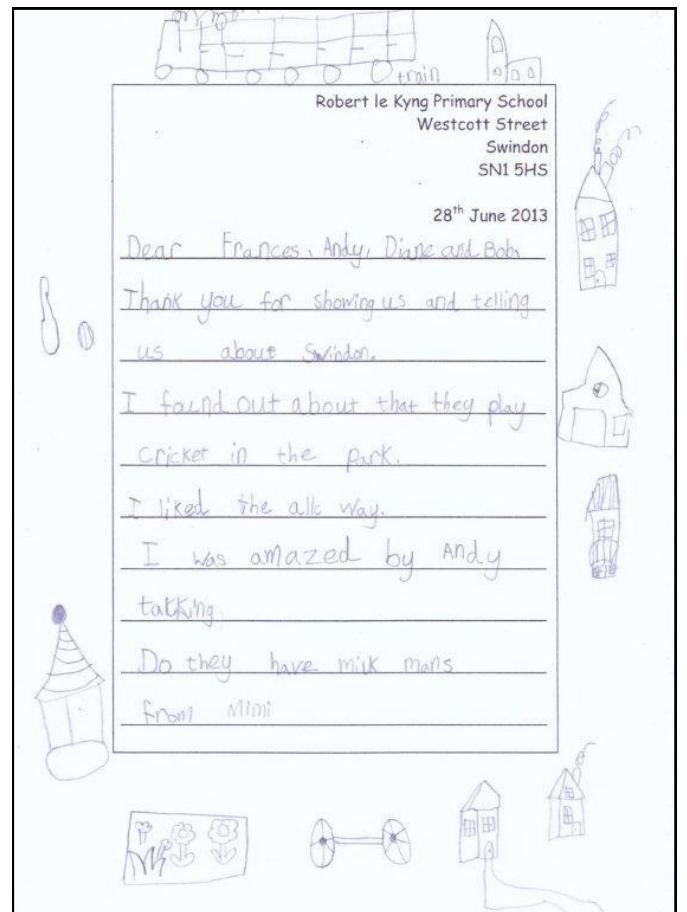 train
Robert le Kyng Primary School
Westcott Street
Swindon
SN1 5HS
28th June 2013
Dear Frances, Andy, Diane and Bob,
Thank you for showing us and telling
us about Swindon.
I found out about that they play
cricket in the park.
I liked the alle way.
I was amazed by Andy
talking
Do they have milk mans
from Mimi